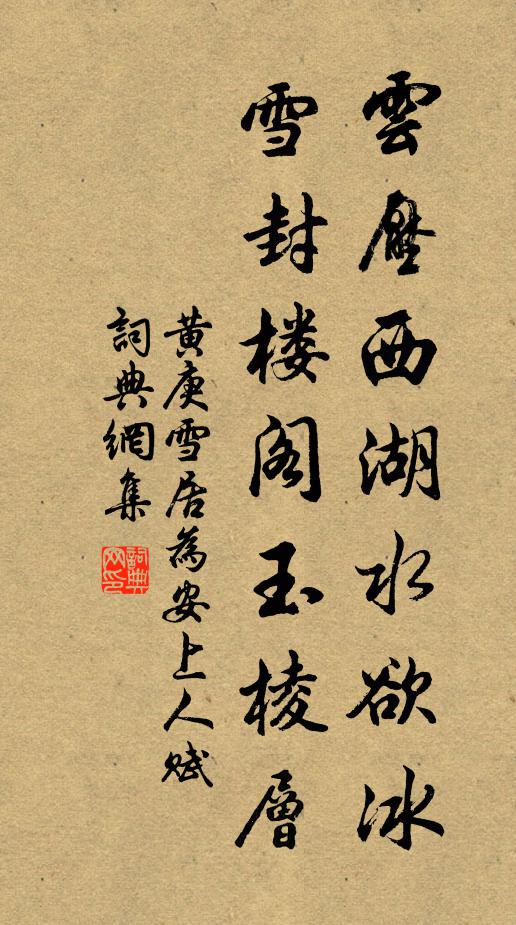 雲壓西湖水欲冰
雪封楼阁玉棱層
黄庚雪居為安上人赋
詞典網集
詞典网印